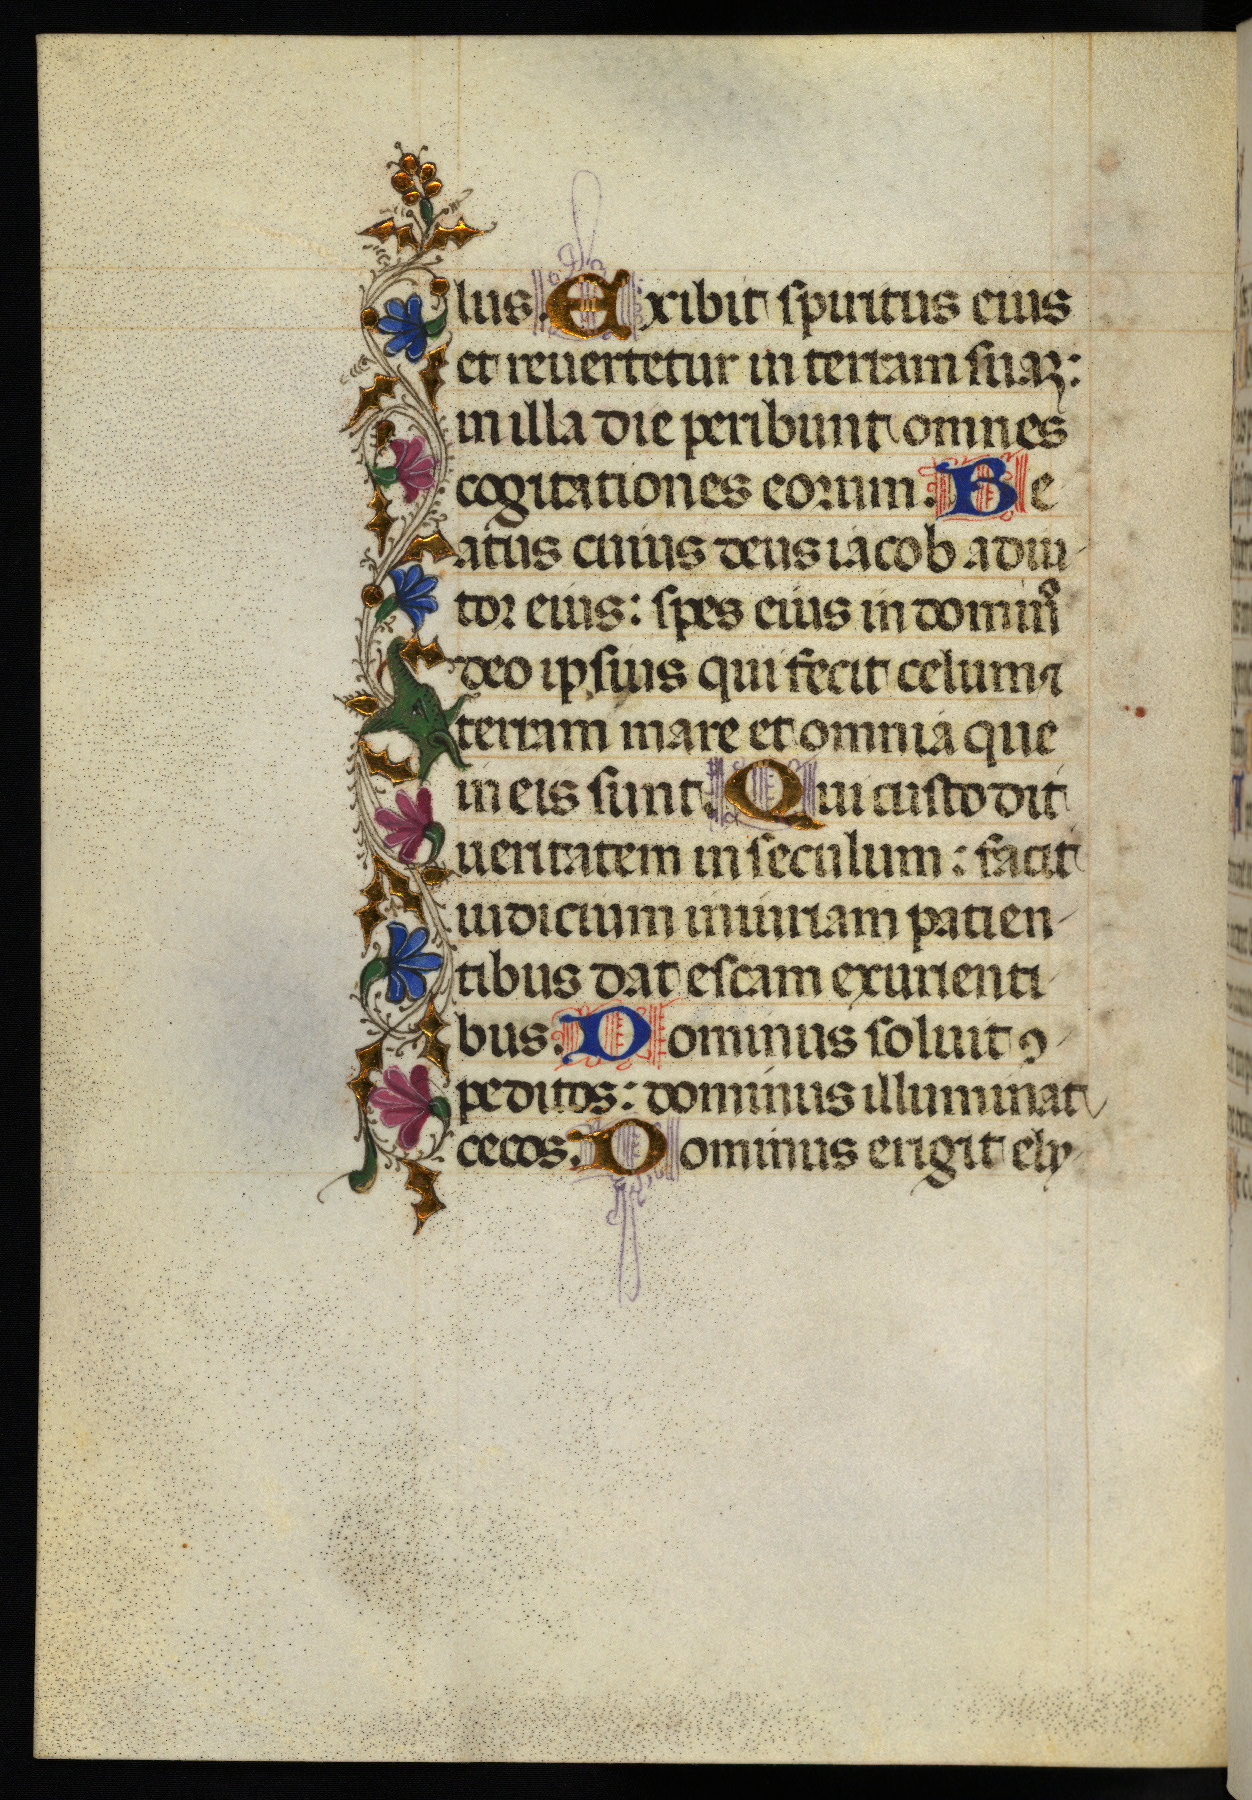 lus. Exibit spiritus eius
et reuertetur in terram suaꝫ:
in illa die peribunt omnes
cogitationes eorum. Be
atus cuius deus iacob adiu
tor eius: spes eius in domin̄o
deo ipsius qui fecit celum ⁊
terram mare et omnia que
in eis sunt. Qui custodit
ueritatem in seculum: facit
iudicium iniuriam patien
tibus dat escam exurienti
bus. Dominus soluit ꝯ
peditos: dominus illuminat
cecos. Dominus erigit ely